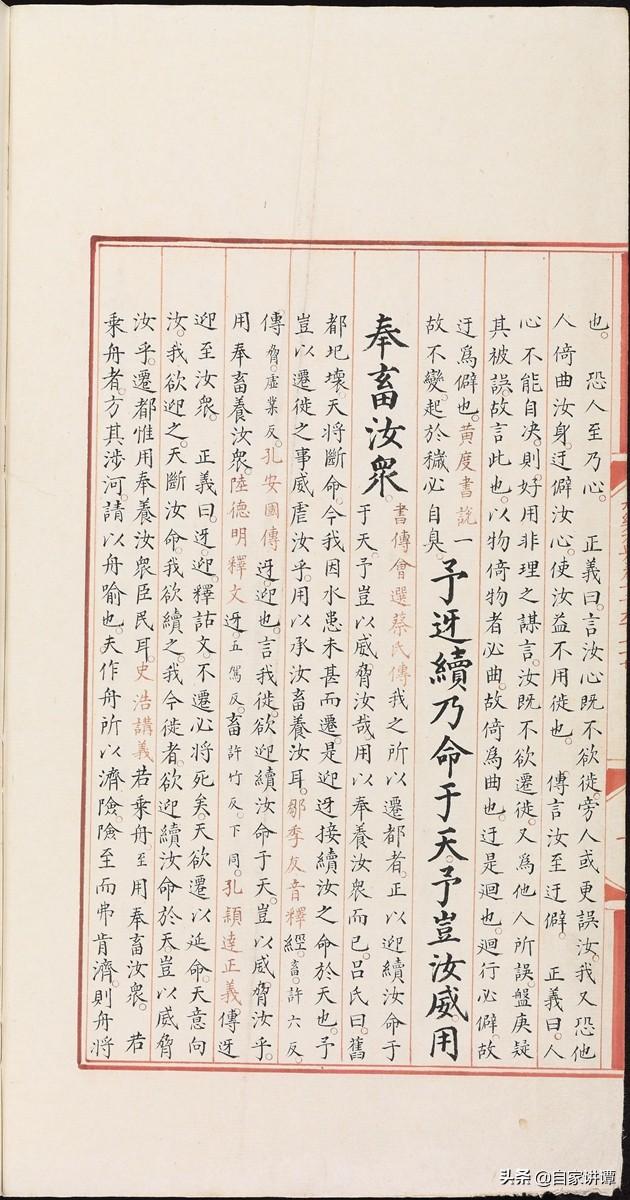 也。 恐人至乃心。 正義曰。言汝心既不欲徙。旁人或更誤汝。我又恐他
人倚曲汝身。迂僻汝心。使汝益不用徙也。 傳言汝至迂僻。 正義曰。人
心不能自决。則好用非理之謀。言汝既不欲遷徙。又為他人所誤。盤庚疑
其被誤。故言此也。以物倚物者必曲。故倚為曲也。迂是迴也。迴行必僻。故
迂為僻也。黄度書說一
故不變。起於穢必自臭。
予迓續乃命于天。予豈汝威用
奉畜汝衆。
書傳會選蔡氏傳我之所以遷都者。正以迎續汝命于
于天。予豈以威脅汝哉。用以奉養汝衆而已。呂氏曰。舊
都圯壞。天將斷命。今我因水患未甚而遷。是迎迓接續汝之命於天也。予
豈以遷徙之事威虐汝乎。用以承汝畜養汝耳。鄒季友音釋經。畜。許六反。
傳脅。虛業反。孔安國傳迓。迎也。言我徙。欲迎續汝命于天。豈以威脅汝乎。
用奉畜養汝衆。陸德明釋文迓。五駕反。畜許竹反。下同。孔穎達正義傳迓
迎至汝衆。 正義曰。迓。迎。釋詁文。不遷必將死矣。天欲遷以延命。天意向
汝。我欲迎之。天斷汝命。我欲續之。我今徙者。欲迎續汝命於天。豈以威脅
汝乎。遷都惟用奉養汝衆臣民耳。史浩講義若乘舟至用奉畜汝衆。 若
乘舟者。方其涉河。請以舟喻也。夫作舟所以濟險。險至而弗肯濟。則舟將
头条 @自家讲谭